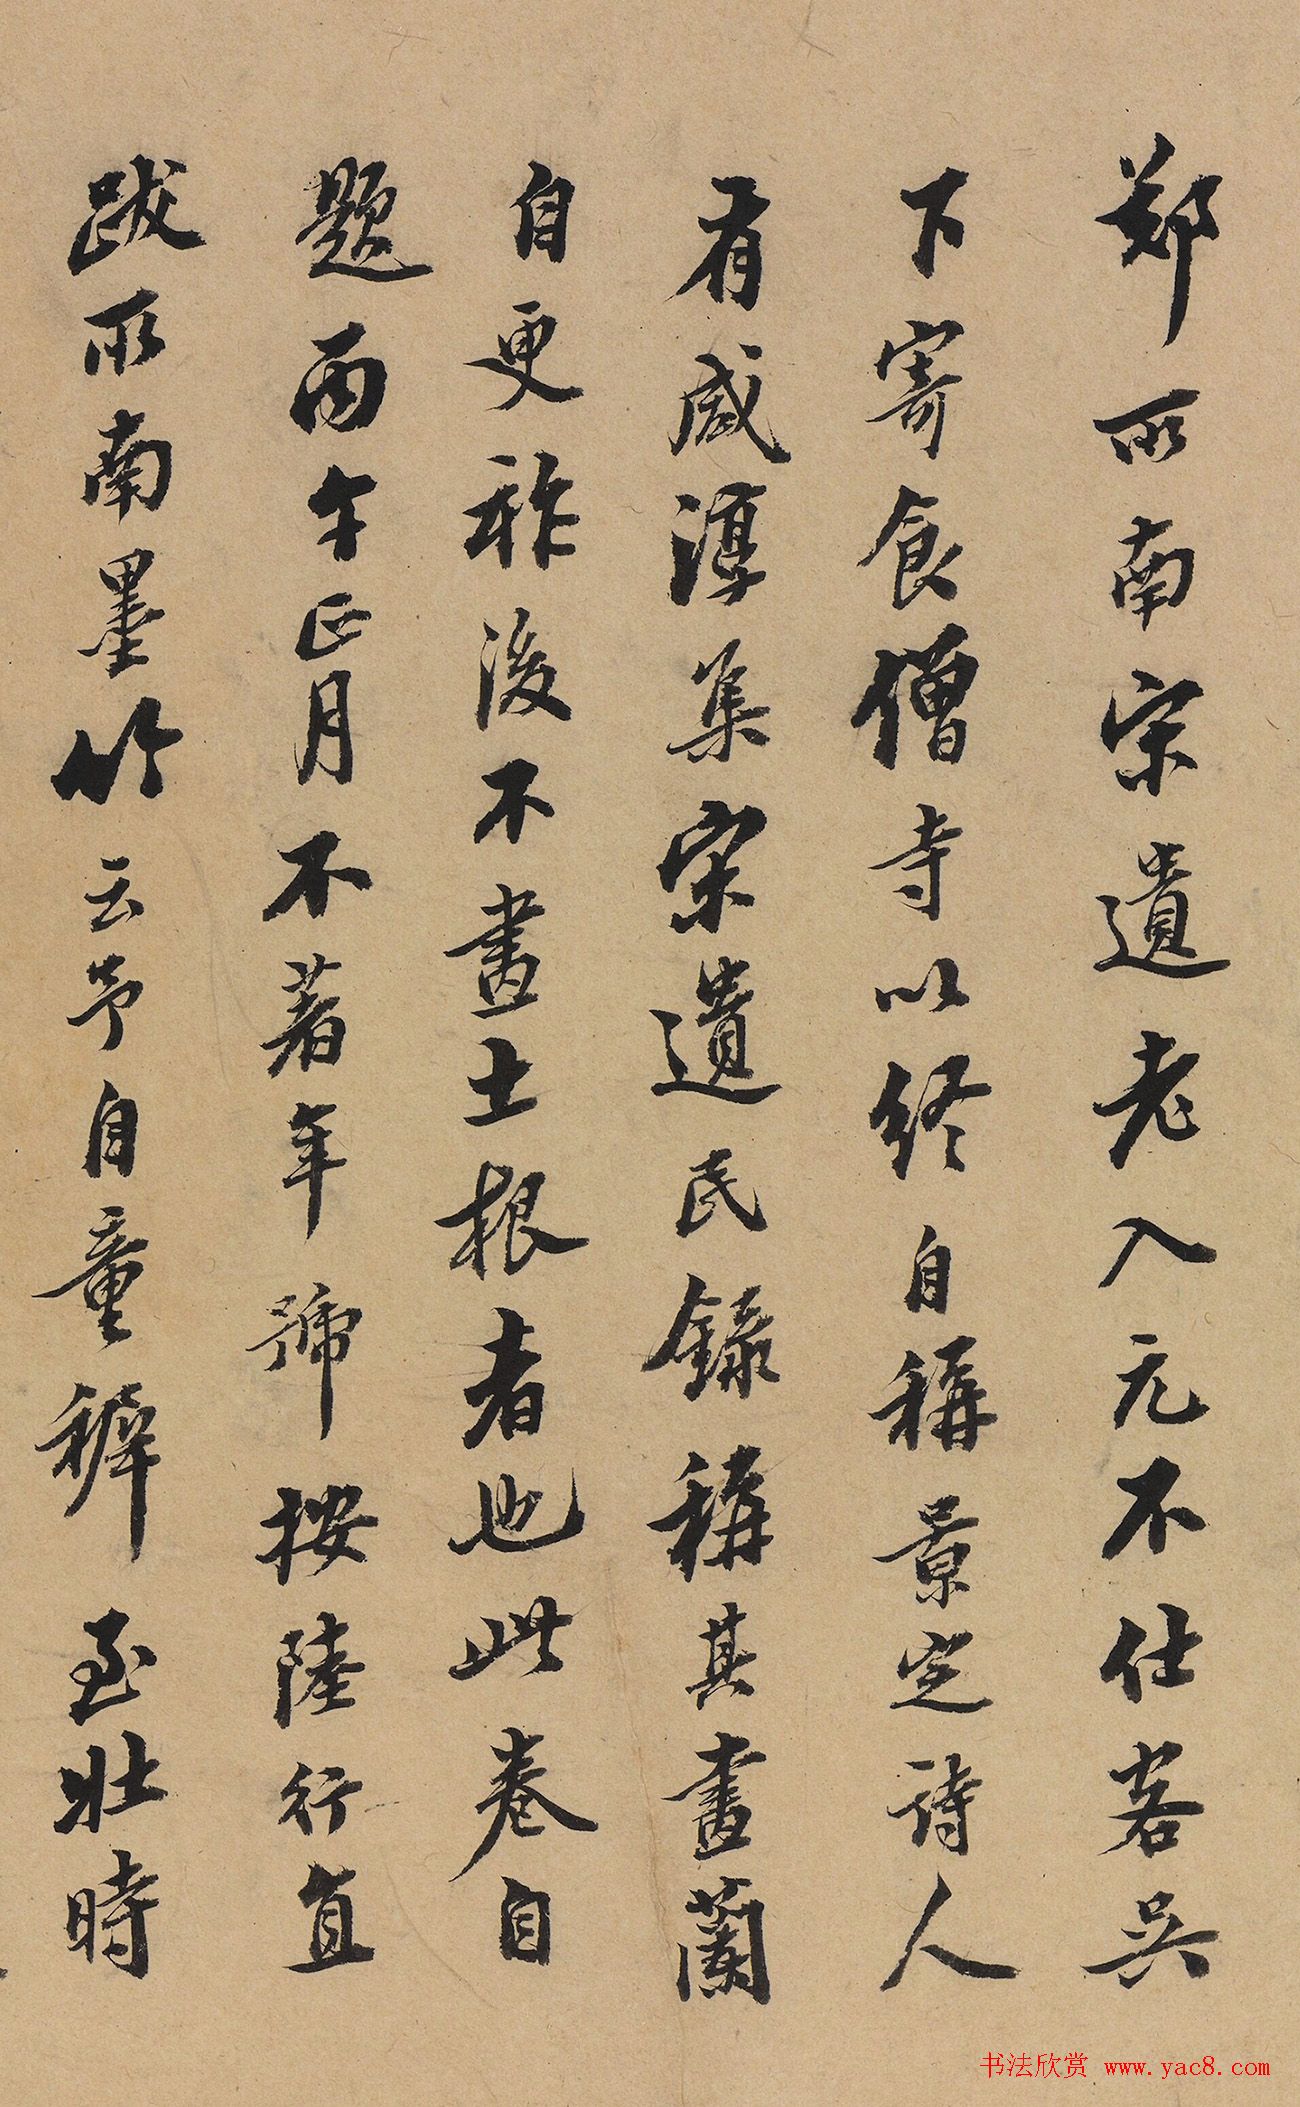 郑所南宋遺老入元不仕客吴
下寄食僧寺以終自稱景定詩人
有咸淳集宋遺民錄稱其畫蘭
自更祚後不畫土根者也此卷自
題丙午正月不著年號按陸行直
跋所南墨竹云予自童穉至壯時
书法欣赏 www.yac8.com